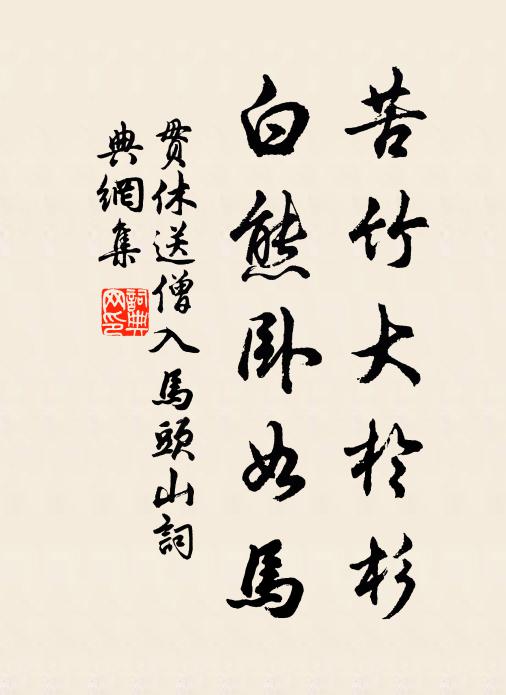 苦竹大於杉
白熊卧如馬
貫休送僧入馬頭山詞
典網集
詞典网印